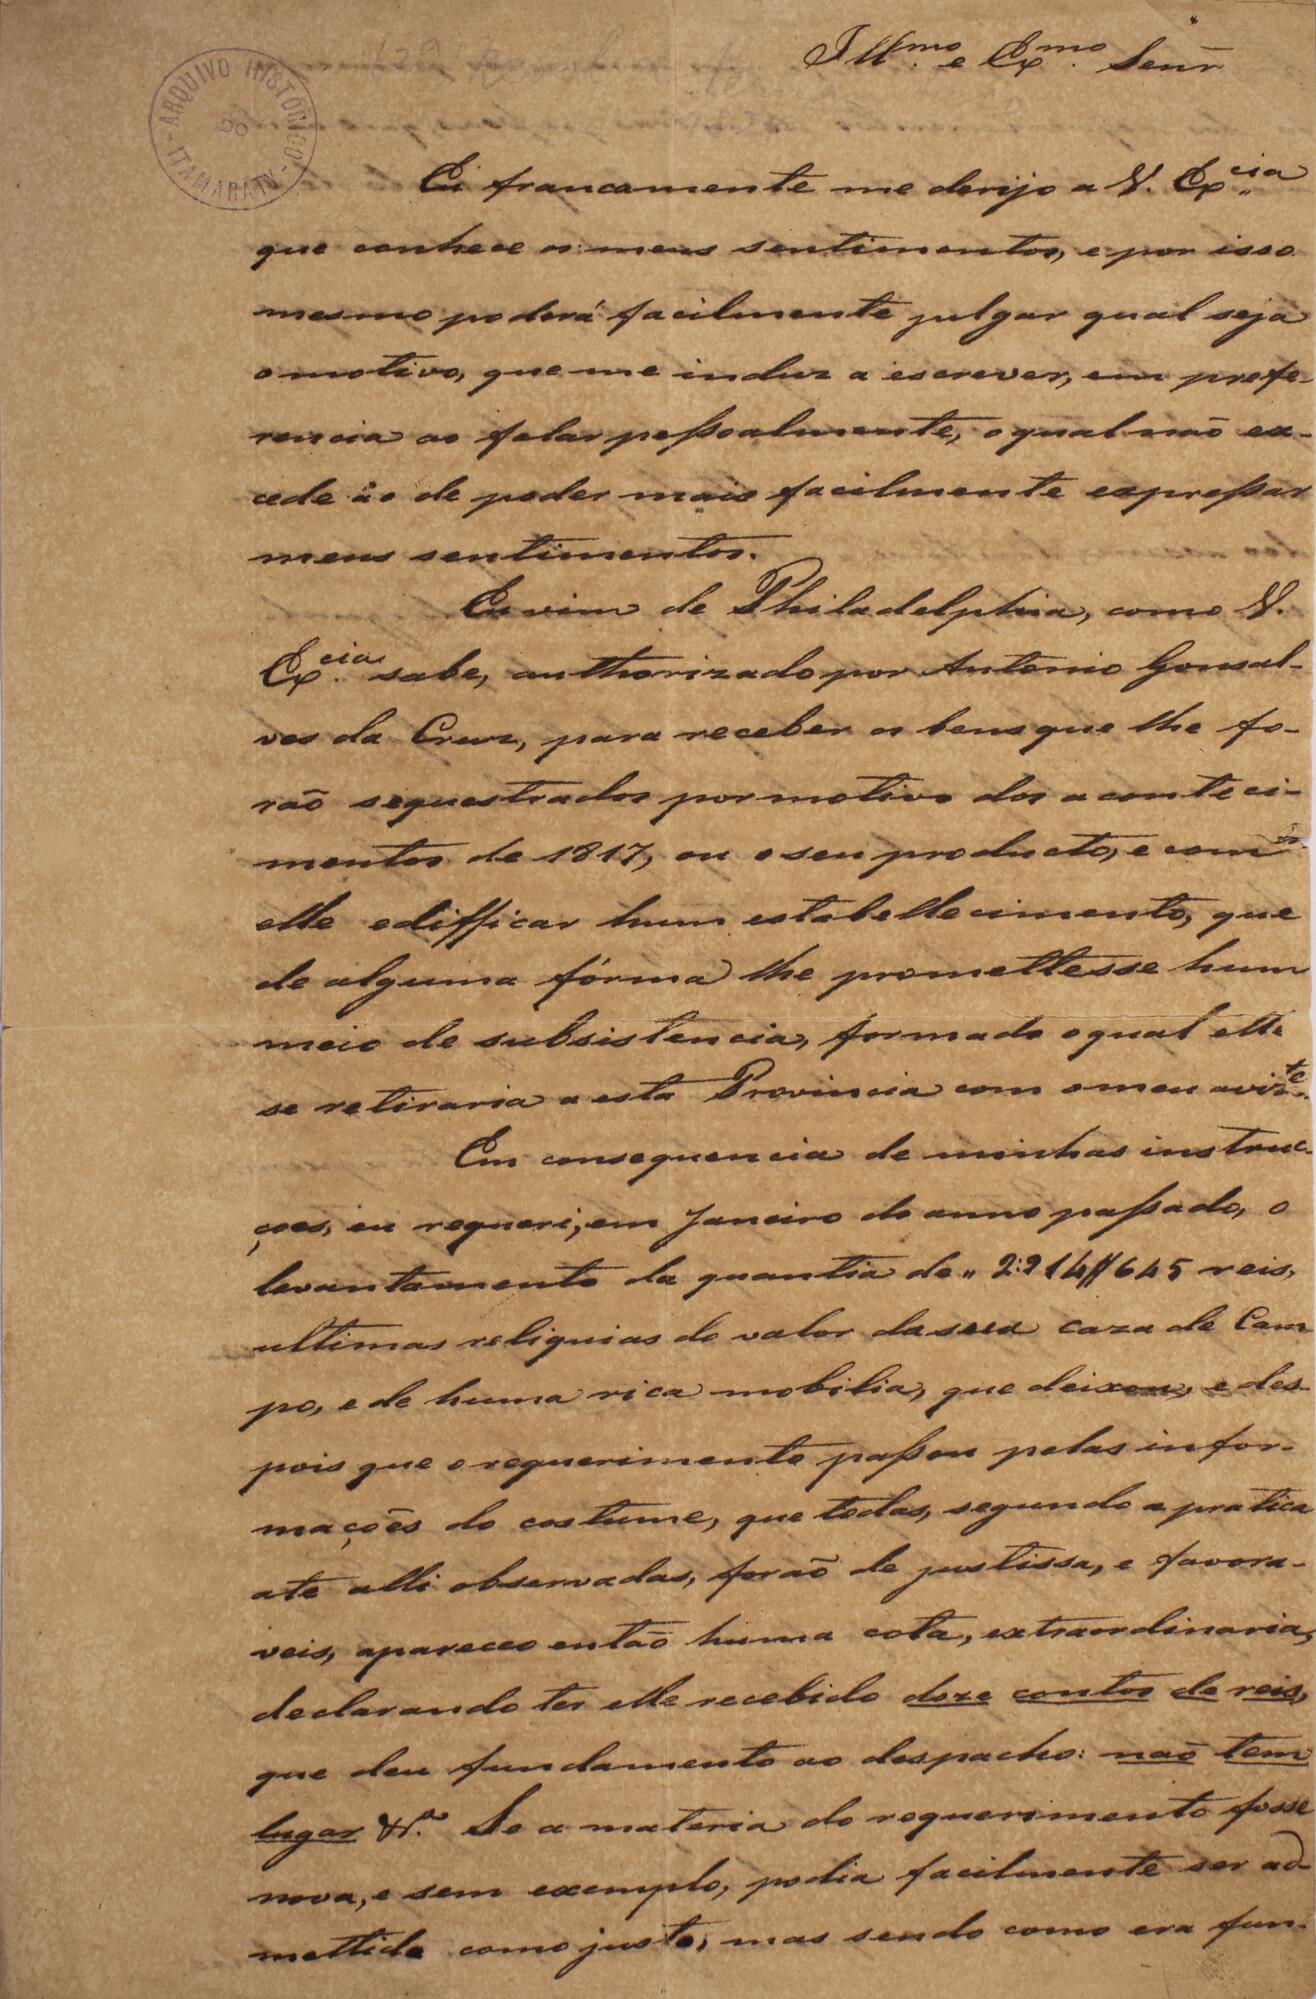 Ill.mo e Ex.mo Senr
ARQUIVO HISTÓRICO DO ITAMARATY
Eu francamente me derijo a V. Ex.cia
que conhece os meus sentimentos, e por isso
mesmo poderá facilmente julgar qual seja
o motivo, que me induz a escrever, em prefe-
rencia ao falar peßoalmente, o qual não ex-
cede ao de poder mais facilmente expreßar
meus sentimentos.
Eu vim de Philadelphia, como V.
Ex.cia sabe, authorizado por Antonio Gonsal-
ves da Cruz, para receber os bens que lhe fo-
rão sequestrados por motivo dos aconteci-
mentos de 1817, ou o seu producto, e com
elle edifficar hum estabellecimento, que
de alguma fórma lhe promettesse hum
meio de subsistencia, formado o qual elle
se retiraria a esta Provincia com o meu avizo
Em consequencia de minhas instruc-
ções, eu requeri, em Janeiro do anno paßado, o
levantamento da quantia de " 2:214//645 reis,
ultimas reliquias do valor da sua caza de Cam
po, e de huma rica mobilia, que deixou, e des-
pois que o requerimento paßou pelas infor-
mações do costume, que todas, segundo a pratica
ate alli observadas, forão de justissa, e favora-
veis, apareceo então huma cota, extraordinaria,
declarando ter elle recebido doze contos de reis,
que deu fundamento ao despacho: não tem
lugar &.a Se a materia do requerimento fosse
nova, e sem exemplo, podia facilmente ser ad-
mettida como justa, mas sendo como era fun-